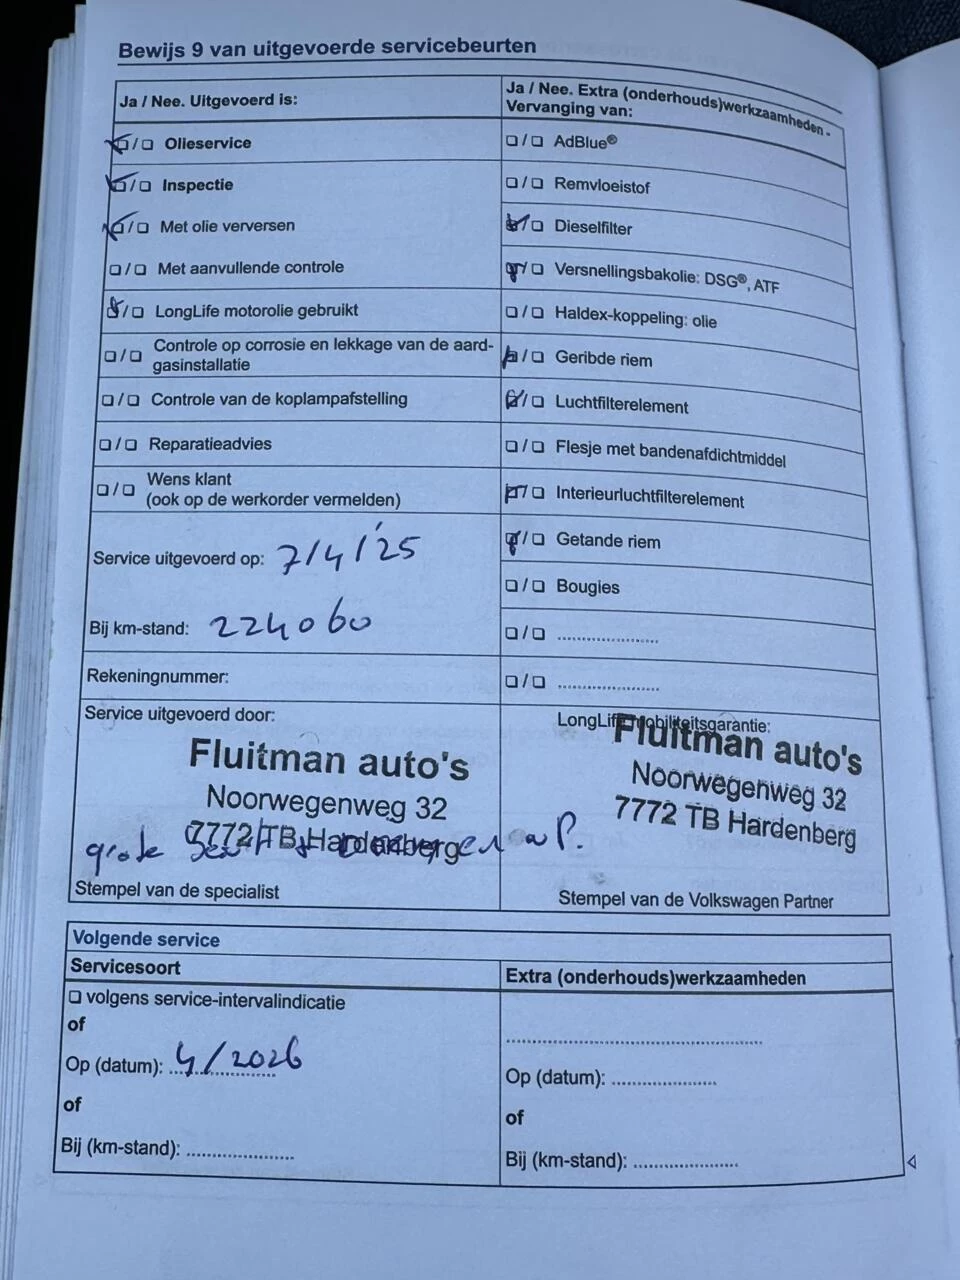 Bewijs 9 van uitgevoerde servicebeurten
Ja / Nee. Uitgevoerd is:
Olieservice
Inspectie
Met olie verversen
Met aanvullende controle
LongLife motorolie gebruikt
Controle op corrosie en lekkage van de aard-
gasinstallatie
Controle van de koplampafstelling
Reparatieadvies
Wens klant
(ook op de werkorder vermelden)
Service uitgevoerd op: 7/4/'25
Bij km-stand: 224060
Rekeningnummer:
Service uitgevoerd door:
Fluitman auto's
Noorwegenweg 32
7772 TB Hardenberg
grote
Stempel van de specialist
Ja / Nee. Extra (onderhouds)werkzaamheden -
Vervanging van:
AdBlue®
Remvloeistof
Dieselfilter
Versnellingsbakolie: DSG®, ATF
Haldex-koppeling: olie
Geribde riem
Luchtfilterelement
Flesje met bandenafdichtmiddel
Interieurluchtfilterelement
Getande riem
Bougies
LongLife Mobiliteitsgarantie:
Fluitman auto's
Noorwegenweg 32
7772 TB Hardenberg
Stempel van de Volkswagen Partner
Volgende service
Servicesoort
volgens service-intervalindicatie
of
Op (datum): 4/2026
of
Bij (km-stand):
Extra (onderhouds)werkzaamheden
Op (datum):
of
Bij (km-stand):